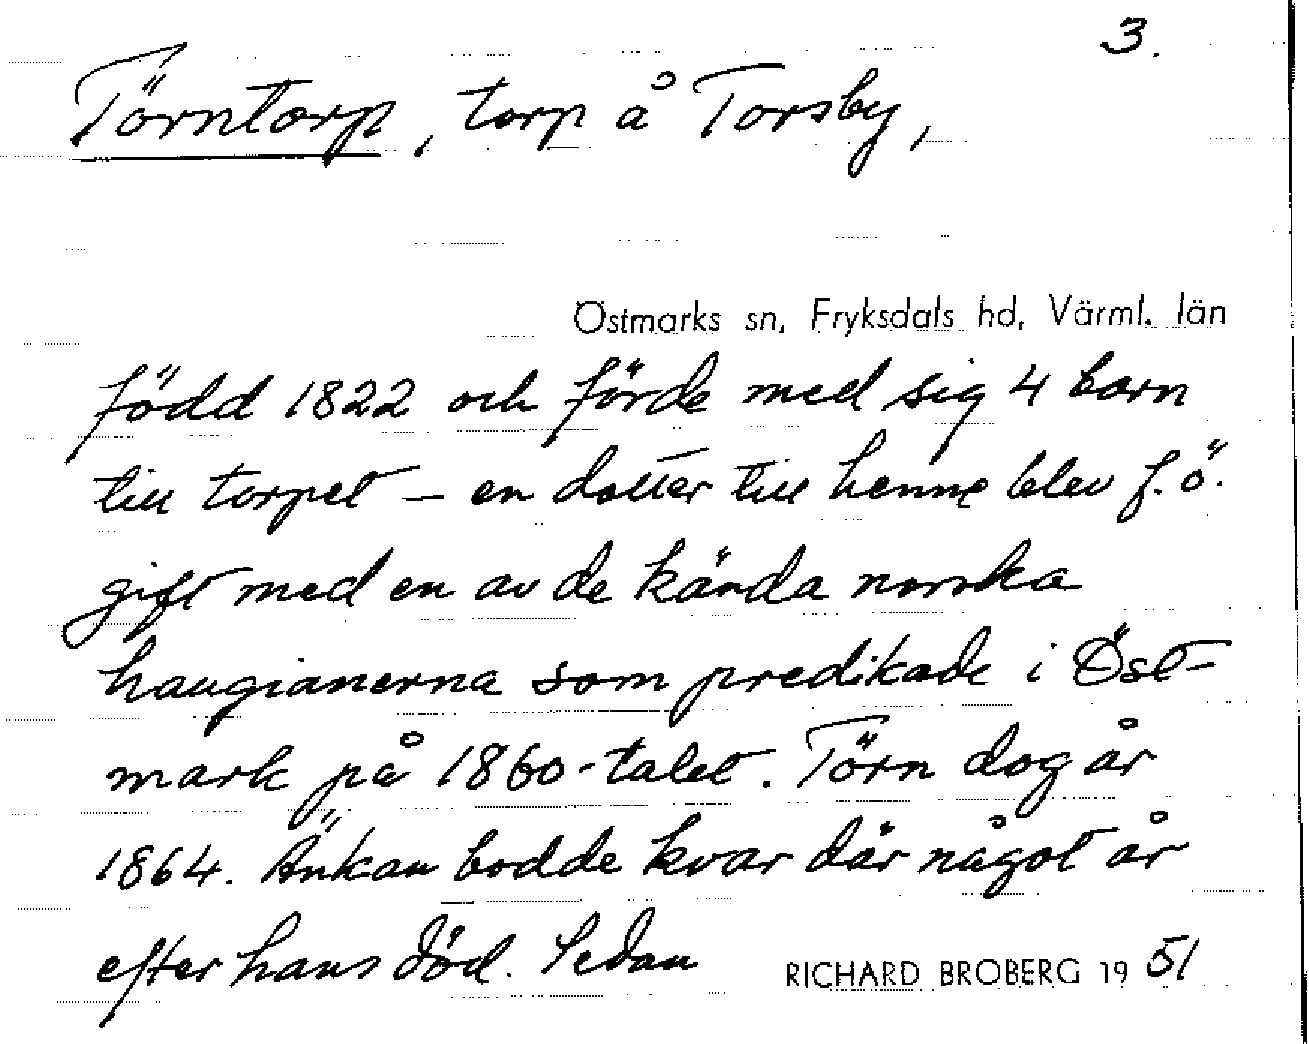 3.
Törntorp, torp å Torsby,
Östmarks sn, Fryksdals hd, Värml. län
född 1822 och förde med sig 4 barn
till torpet – en dotter till henne blev f. ö.
gift med en av de kända norska
haugianerna som predikade i Öst-
mark på 1860-talet. Törn dog år
1864. Änkan bodde kvar där något år
efter hans död. Sedan
RICHARD BROBERG 1951